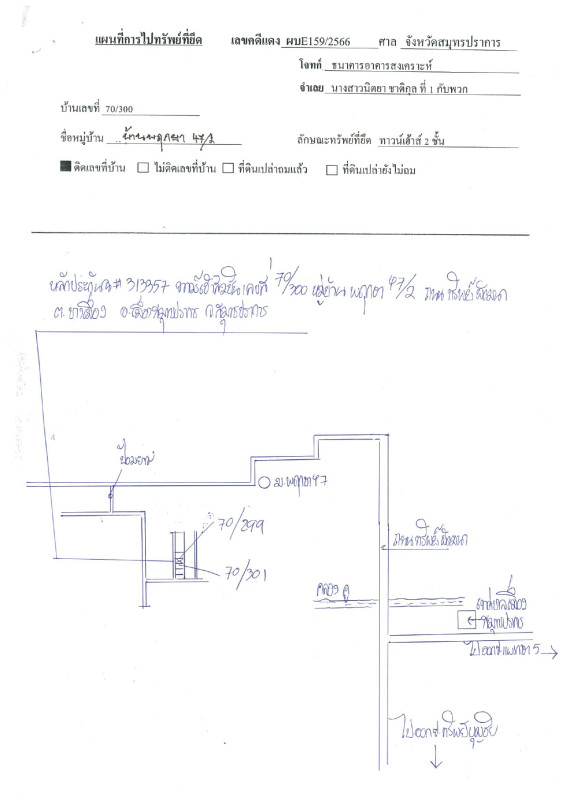 แผนที่การไปทรัพย์ที่ยึด เลขคดีแดง ผบE159/2566 ศาล จังหวัดสมุทรปราการ
โจทก์ ธนาคารอาคารสงเคราะห์
จำเลย นางสาวนิตยา ชาติกุล ที่ 1 กับพวก
บ้านเลขที่ 70/300
ชื่อหมู่บ้าน ..บ้านพฤกษา 47/2 ลักษณะทรัพย์ที่ยึด ทาวน์เฮ้าส์ 2 ชั้น
ติดเลขที่บ้าน ไม่ติดเลขที่บ้าน ที่ดินเปล่าถมแล้ว ที่ดินเปล่ายังไม่ถม
หลักประกัน # 313357 ทาวน์เฮ้าส์ เลขที่ 70/300 หมู่บ้าน พฤกษา 47/2 ถนน
อ.เมืองสมุทรปราการ จ.สมุทรปราการ
ป้อมยาม
ม.พฤกษา 47
70/299
ถนน
70/301
คลอง
สมุทรปราการ
ไปออกแพรกษา 5
ไปออก